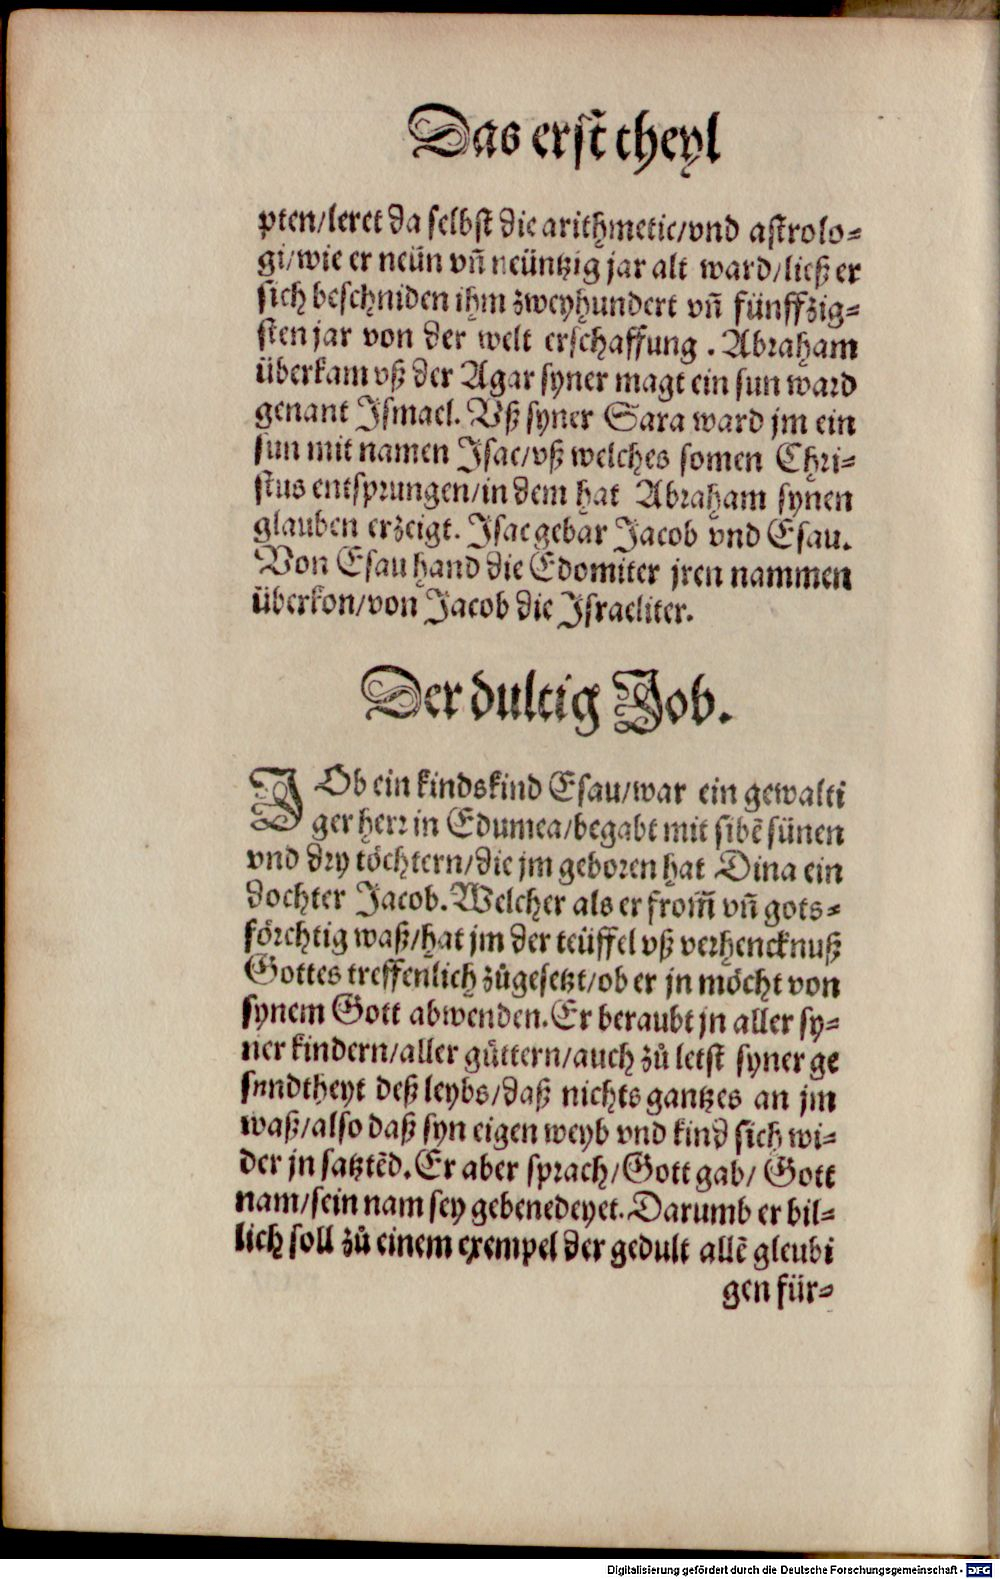 Das erst̃ theyl
pten/leret da selbst die arithmetic/vnd astrolo⸗
gi/wie er neün vñ neüntzig jar alt ward/ließ er
sich beschniden ihm zweyhundert vñ fünffzig⸗
sten jar von der welt erschaffung . Abraham
überkam vß der Agar syner magt ein sun ward
genant Ismael. Vß syner Sara ward jm ein
sun mit namen Isac/vß welches somen Chri⸗
stus entsprungen/in dem hat Abraham synen
glauben erzeigt. Isac gebar Jacob vnd Esau.
Von Esau hand die Edomiter jren nammen
überkon/von Jacob die Israeliter.
Der dultig Job.
JOb ein kindskind Esau/war ein gewalti
ger herr in Edumea/begabt mit sibẽ sünen
vnd dry töchtern/die jm geboren hat Dina ein
dochter Jacob. Welcher als er from̃ vñ gots⸗
förchtig waß/hat jm der teüffel vß verhencknuß
Gottes treffenlich zůgesetzt/ob er jn möcht von
synem Gott abwenden. Er beraubt jn aller sy⸗
ner kindern/aller güttern/auch zů letst syner ge
sundtheyt deß leybs/daß nichts gantzes an jm
waß/also daß syn eigen weyb vnd kind sich wi⸗
der jn satztẽd. Er aber sprach/Gott gab/ Gott
nam/sein nam sey gebenedeyet. Darumb er bil⸗
lich soll zů einem exempel der gedult allẽ gleubi
gen für⸗
Digitalisierung gefördert durch die Deutsche Forschungsgemeinschaft - DFG